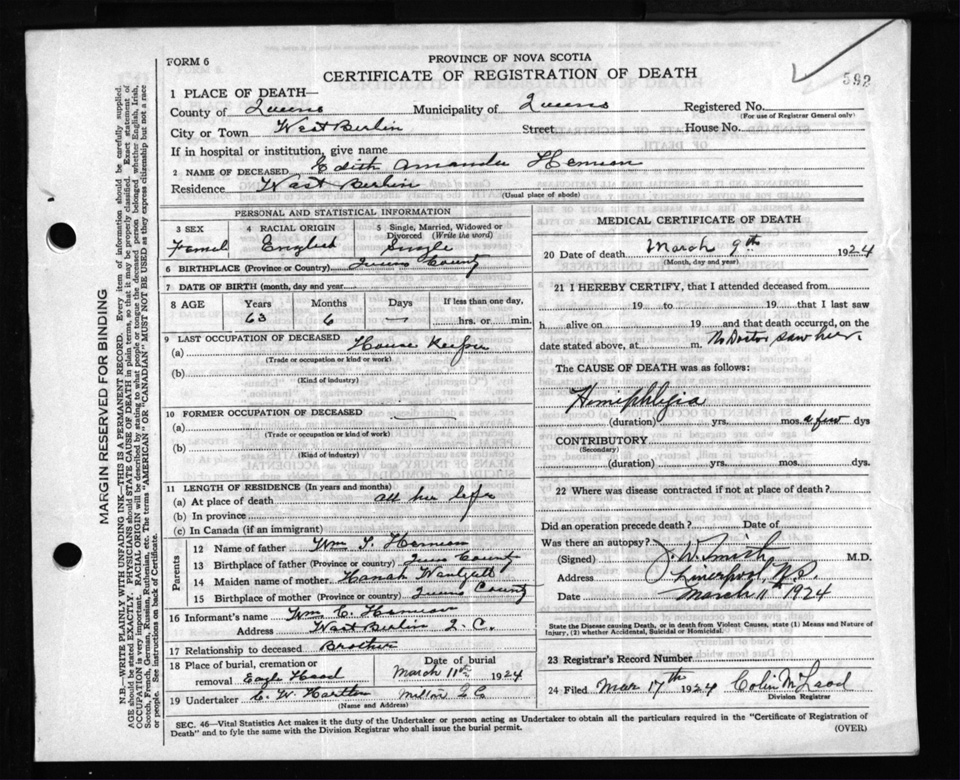 FORM 6
PROVINCE OF NOVA SCOTIA
CERTIFICATE OF REGISTRATION OF DEATH
592
1 PLACE OF DEATH—
County of Queens Municipality of Queens Registered No.
(For use of Registrar General only)
City or Town West Berlin Street House No.
If in hospital or institution, give name
2 NAME OF DECEASED Edith Amanda
Residence West Berlin
(Usual place of abode)
PERSONAL AND STATISTICAL INFORMATION
3 SEX 4 RACIAL ORIGIN 5 Single, Married, Widowed or Divorced (Write the word)
Femal English Single
6 BIRTHPLACE (Province or Country) Queens County
7 DATE OF BIRTH (month, day and year)
8 AGE Years Months Days If less than one day,
63 6 — hrs. or min.
9 LAST OCCUPATION OF DECEASED
(a) House Keeper
(Trade or occupation or kind or work)
(b)
(Kind of industry)
10 FORMER OCCUPATION OF DECEASED
(a) —
(Trade or occupation or kind of work)
(b)
(Kind of industry)
11 LENGTH OF RESIDENCE (In years and months)
(a) At place of death all her life
(b) In province
(c) In Canada (if an immigrant)
Parents
12 Name of father Wm
13 Birthplace of father (Province or Country) Queens County
14 Maiden name of mother Hanah
15 Birthplace of mother (Province or Country) Queens County
16 Informant's name Wm C.
Address West Berlin Q. C.
17 Relationship to deceased Brother
18 Place of burial, cremation or removal Eagle Head
Date of burial March 11th 1924
19 Undertaker C. W.
(Name and Address)
MEDICAL CERTIFICATE OF DEATH
20 Date of death March 9th 1924
(Month, day and year)
21 I HEREBY CERTIFY, that I attended deceased from
19 to 19 that I last saw
h alive on 19 and that death occurred, on the
date stated above, at m. No Doctor saw her.
The CAUSE OF DEATH was as follows:
Hemiphlegia
(duration) yrs. mos. a few dys
CONTRIBUTORY
(Secondary)
(duration) yrs. mos. dys.
22 Where was disease contracted if not at place of death?
Did an operation precede death? Date of
Was there an autopsy?
(Signed) J. W. Smith M.D.
Address Liverpool, N.S.
Date March 11th 1924
State the Disease causing Death, or in death from Violent Causes, state (1) Means and Nature of Injury, (2) whether Accidental, Suicidal or Homicidal.
23 Registrar's Record Number
24 Filed Mar 17th 1924 Colin McLeod
Division Registrar
SEC. 46—Vital Statistics Act makes it the duty of the Undertaker or person acting as Undertaker to obtain all the particulars required in the "Certificate of Registration of
Death" and to fyle the same with the Division Registrar who shall issue the burial permit.
(OVER)
MARGIN RESERVED FOR BINDING
N.B.—WRITE PLAINLY WITH UNFADING INK—THIS IS A PERMANENT RECORD. Every item of information should be carefully supplied.
AGE should be stated EXACTLY. PHYSICIANS should STATE CAUSE OF DEATH in plain terms, so that it may be properly classified. Exact statement of
OCCUPATION is very important. RACIAL ORIGIN will be described by stating to what people or tongue the deceased person belonged whether English, Irish,
Scotch, French, German, Russian, Ruthenian, etc. The terms "AMERICAN" OR "CANADIAN" MUST NOT BE USED as they express citizenship but not a race
or people. See instructions on back of Certificate.